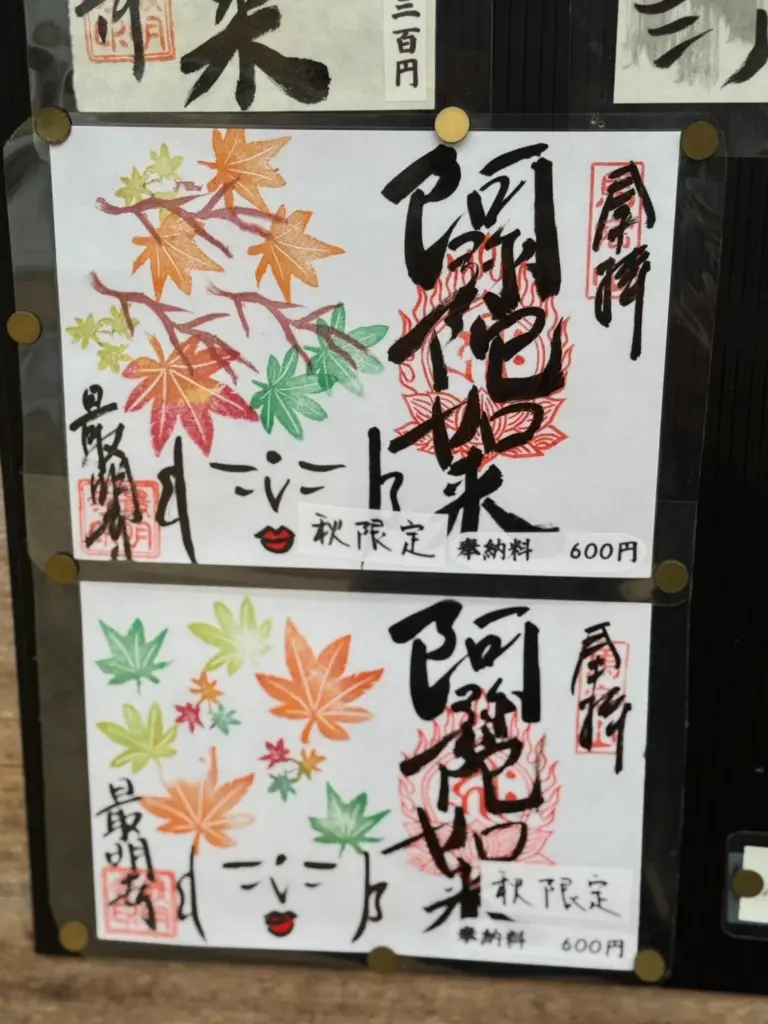 来
三百円
奉拝
阿弥陀如来
最明寺
秋限定
奉納料 600円
奉拝
阿弥陀如来
最明寺
秋限定
奉納料 600円